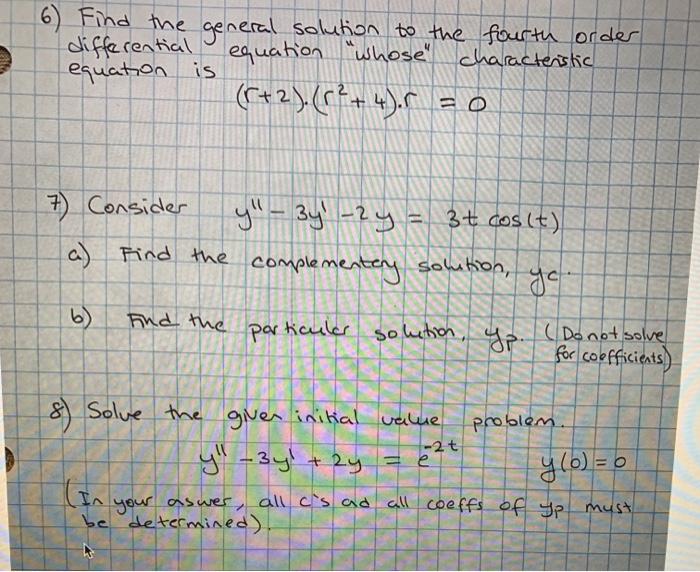 6) Find the general solution to the fourth order
differential equation "whose" characteristic
equation is
(r+2).(r²+4).r = 0
7) Consider y'' - 3y' - 2y = 3t cos(t)
a) Find the complementery solution, yc.
b) Find the particuler solution, yp. (Do not solve
for coefficients)
8) Solve the given initial value problem.
y'' - 3y' + 2y = e^-2t y(0) = 0
(In your aswer, all c's ad all coeffs of yp must
be determined).